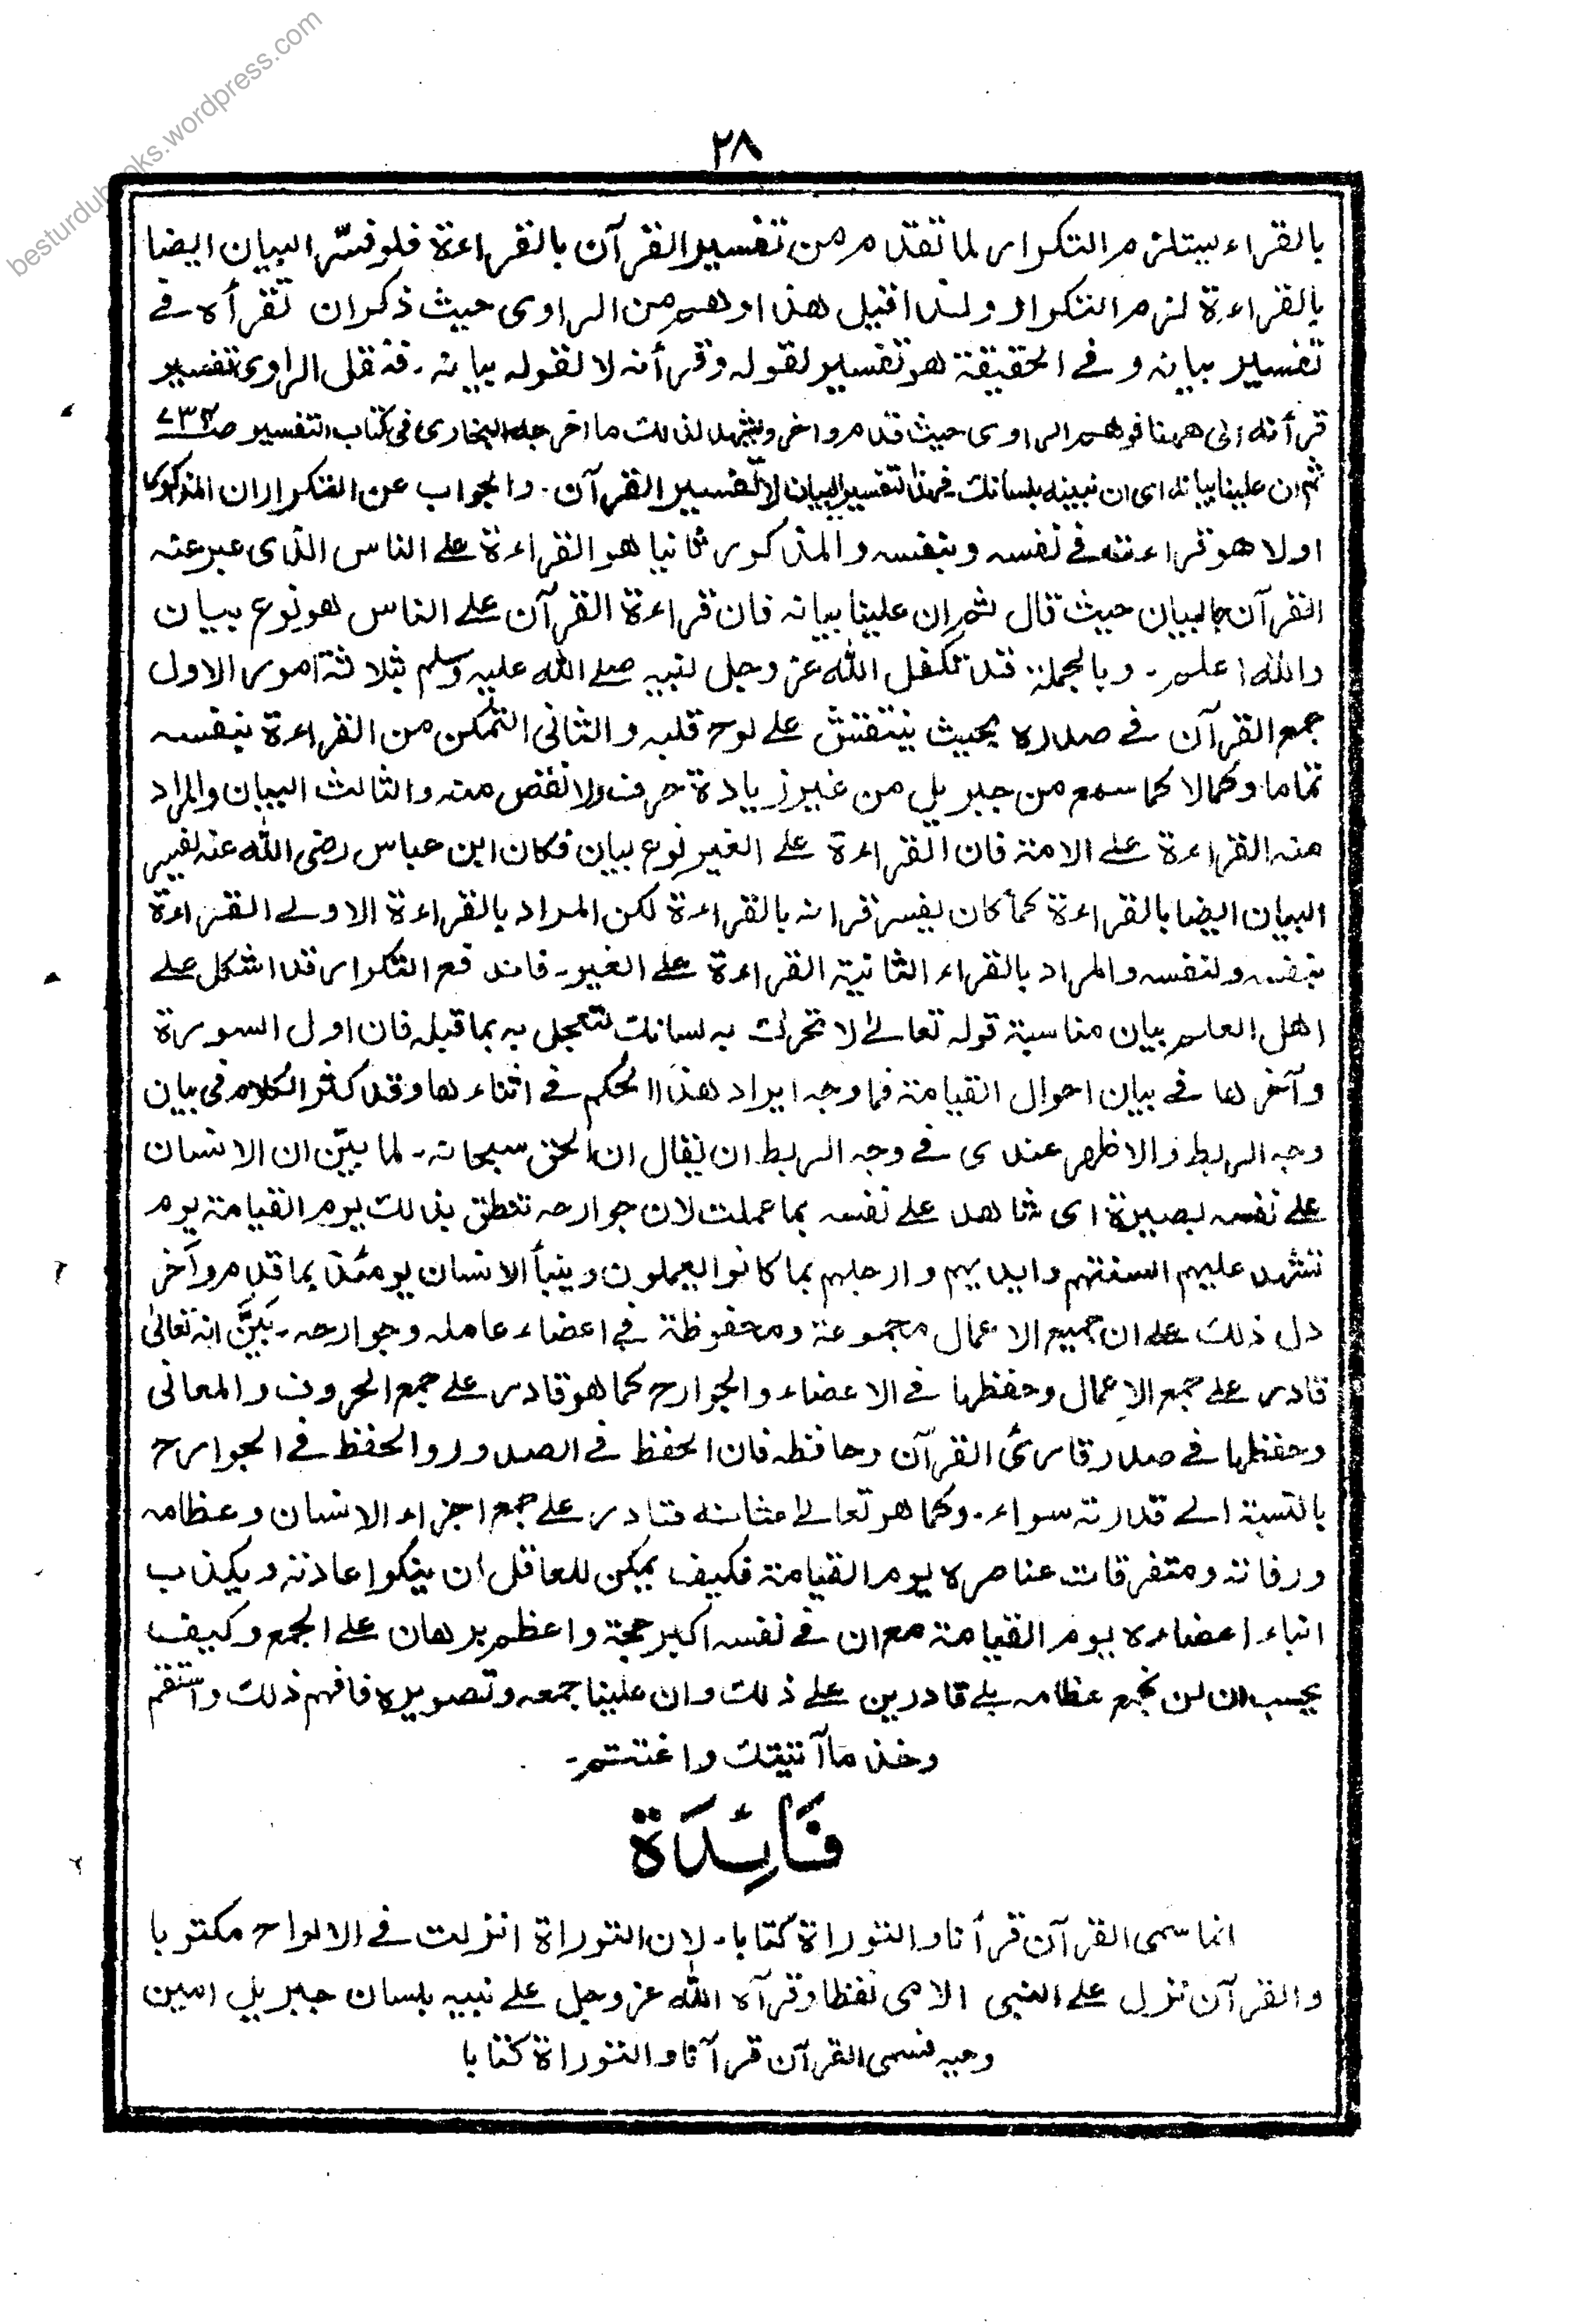 besturdubooks.wordpress.com
٢٨
بالقراء يستلزم التكرار لما تقدم من تفسير القرآن بالقراءة فلو فسّر البيان ايضا
بالقراءة لزم التكرار ولذا قيل هذا وهم من الراوى حيث ذكر ان تقرأه فى
تفسير بيانه وفى الحقيقة هو تفسير لقوله وقرأنه لا لقوله بيانه۔ فنقل الراوى تفسير
قرأنه الى ههنا فوهم الراوى حيث قدم واخر ويشهد لذلك ما اخرجه البخارى فى كتاب التفسير صـ٧٣٤
ثم ان علينا بيانه اى ان نبينه بلسانك۔ فهذا تفسير البيان لا تفسير القرآن۔ والجواب عن التكرار ان المذكور
اولا هو قراءته فى نفسه وبنفسه والمذكور ثانيا هو القراءة على الناس الذى عبر عنه
القرآن بالبيان حيث قال ثم ان علينا بيانه فان قراءة القرآن على الناس هو نوع بيان
والله اعلم۔ وبالجملة قد تكفل الله عز وجل لنبيه صلى الله عليه وسلم بثلاثة امور الاول
جمع القرآن فى صدره بحيث ينتقش على لوح قلبه والثانى التمكن من القراءة بنفسه
تماما وكمالا كما سمع من جبريل من غير زيادة حرف ولا نقص منه والثالث البيان والمراد
منه القراءة على الامة فان القراءة على الغير نوع بيان فكان ابن عباس رضى الله عنه يفسر
البيان ايضا بالقراءة كما كان يفسر قرانه بالقراءة لكن المراد بالقراءة الاولى القراءة
بنفسه ولنفسه والمراد بالقراء الثانية القراءة على الغير۔ فاندفع التكرار قد اشكل على
اهل العلم بيان مناسبة قوله تعالى لا تحرك به لسانك لتعجل به بما قبله فان اول السورة
وآخرها فى بيان احوال القيامة فما وجه ايراد هذا الحكم فى اثناءها وقد كثر الكلام فى بيان
وجه الربط والاظهر عندى فى وجه الربط ان يقال ان الحق سبحانه۔ لما بيّن ان الانسان
على نفسه بصيرة اى شاهد على نفسه بما عملت لان جوارحه تنطق بذلك يوم القيامة يوم
تشهد عليهم السنتهم وايديهم وارجلهم بما كانوا يعملون وينبأ الانسان يومئذ بما قدم وآخر
دل ذلك على ان جميع الاعمال مجموعة ومحفوظة فى اعضاء عامله وجوارحه۔ بيّن انه تعالىٰ
قادر على جمع الاعمال وحفظها فى الاعضاء والجوارح كما هو قادر على جمع الحروف والمعانى
وحفظها فى صدر قارئ القرآن وحافظه فان الحفظ فى الصدور والحفظ فى الجوارح
بالنسبة الى قدرته سواء۔ وكما هو تعالى شانه قادر على جمع اجزاء الانسان وعظامه
ورفاته ومتفرقات عناصره يوم القيامة فكيف يمكن للعاقل ان ينكر اعادته ويكذب
انباء اعضاءه يوم القيامة مع ان فى نفسه اكبر حجة واعظم برهان على الجمع وكيف
يحسب ان لن نجمع عظامه بلى قادرين على ذلك وان علينا جمعه وتصويره فافهم ذلك واستقم
وخذ ما آتيتك واغتنم۔
فَائِدَة
انما سمى القرآن قرأنا والتوراة كتابا۔ لان التوراة انزلت فى الالواح مكتوبا
والقرآن نزل على النبى الامى لفظا وقرآه الله عز وجل على نبيه بلسان جبريل امين
وحيه فسمى القرآن قرآنا والتوراة كتابا